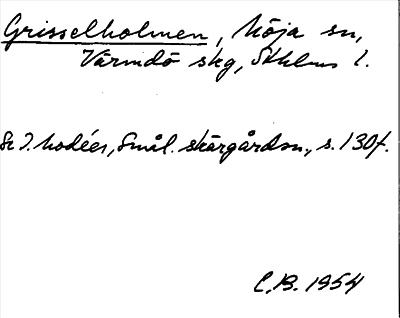 Grisselholmen, Möja sn,
Värmdö skg, Sthlms l.
Se I. Modéer, Smål. skärgårdsn., s. 130f.
C.B. 1954